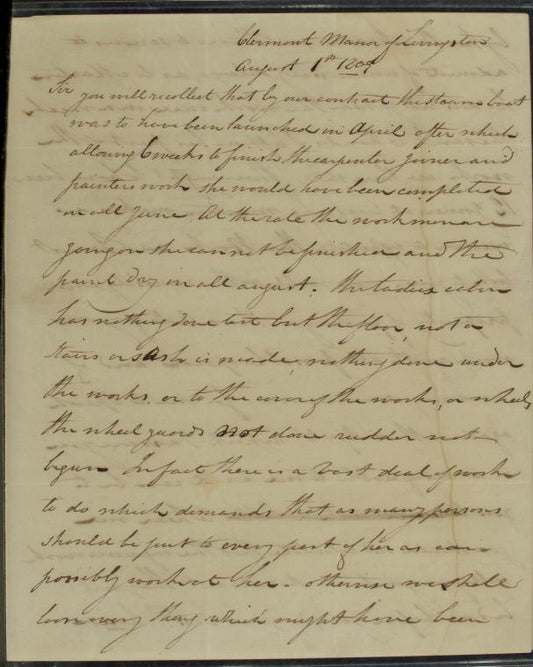 Clermont Manor of Livingston
August 1st 1809
Sir you will recollect that by our contract the steam boat
was to have been launched in April after which
allowing 6 weeks to finish the carpenter Joiner and
painters work she would have been completed
in all June At the rate the workmen are
going on she can not be finished and the
paint Dry in all august. The Ladies cabin
has nothing done to it but the floor, not a
Stairs or sash is made, nothing done under
the works, or to the cover of the works, or wheels
the wheel guards not done rudder not
begun In fact there is a Vast deal of work
to do which demands that as many persons
should be put to every part of her as can
possibly work at her - otherwise we shall
loose every thing which might have been